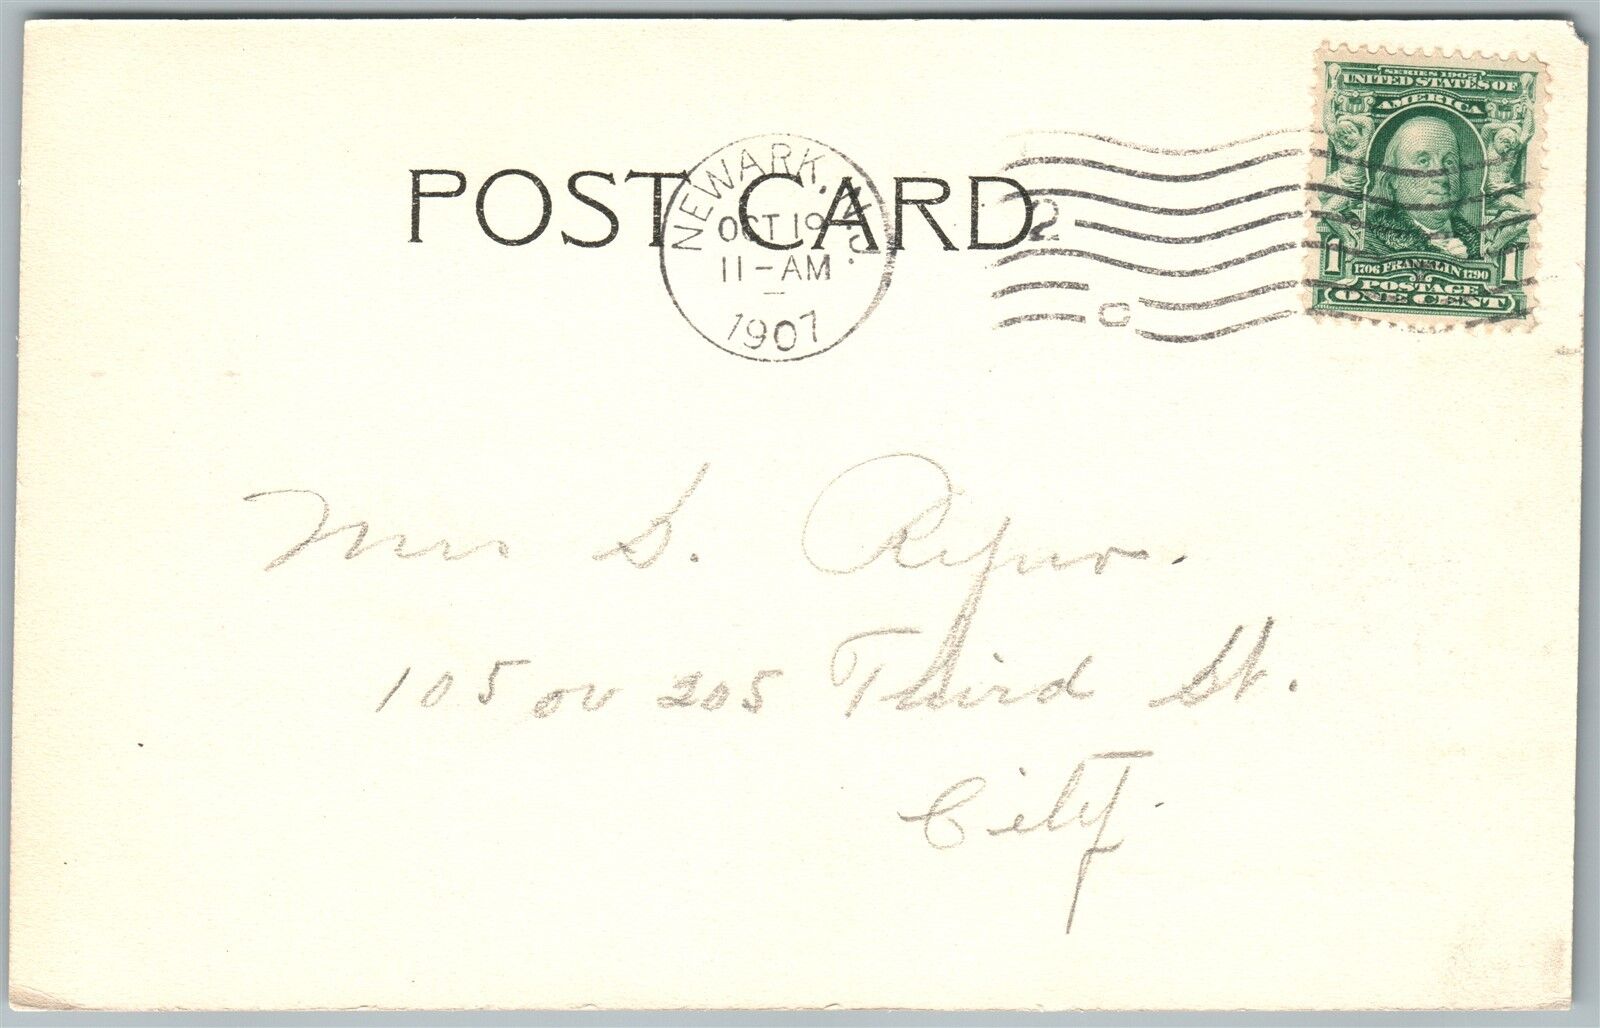 POST CARD
NEWARK, N.J.
OCT 19
11-AM
1907
2
C
SERIES 1902
UNITED STATES OF
AMERICA
1 1
1706 FRANKLIN 1790
POSTAGE
ONE CENT
Mrs S.
105 or 205 Third St.
City.